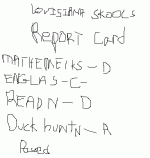 LOUISIANA SKOOLS
REPORT CARD
MATHEMETKS - D
ENGLAS - C-
READN - D
Duck huntn - A
Passed